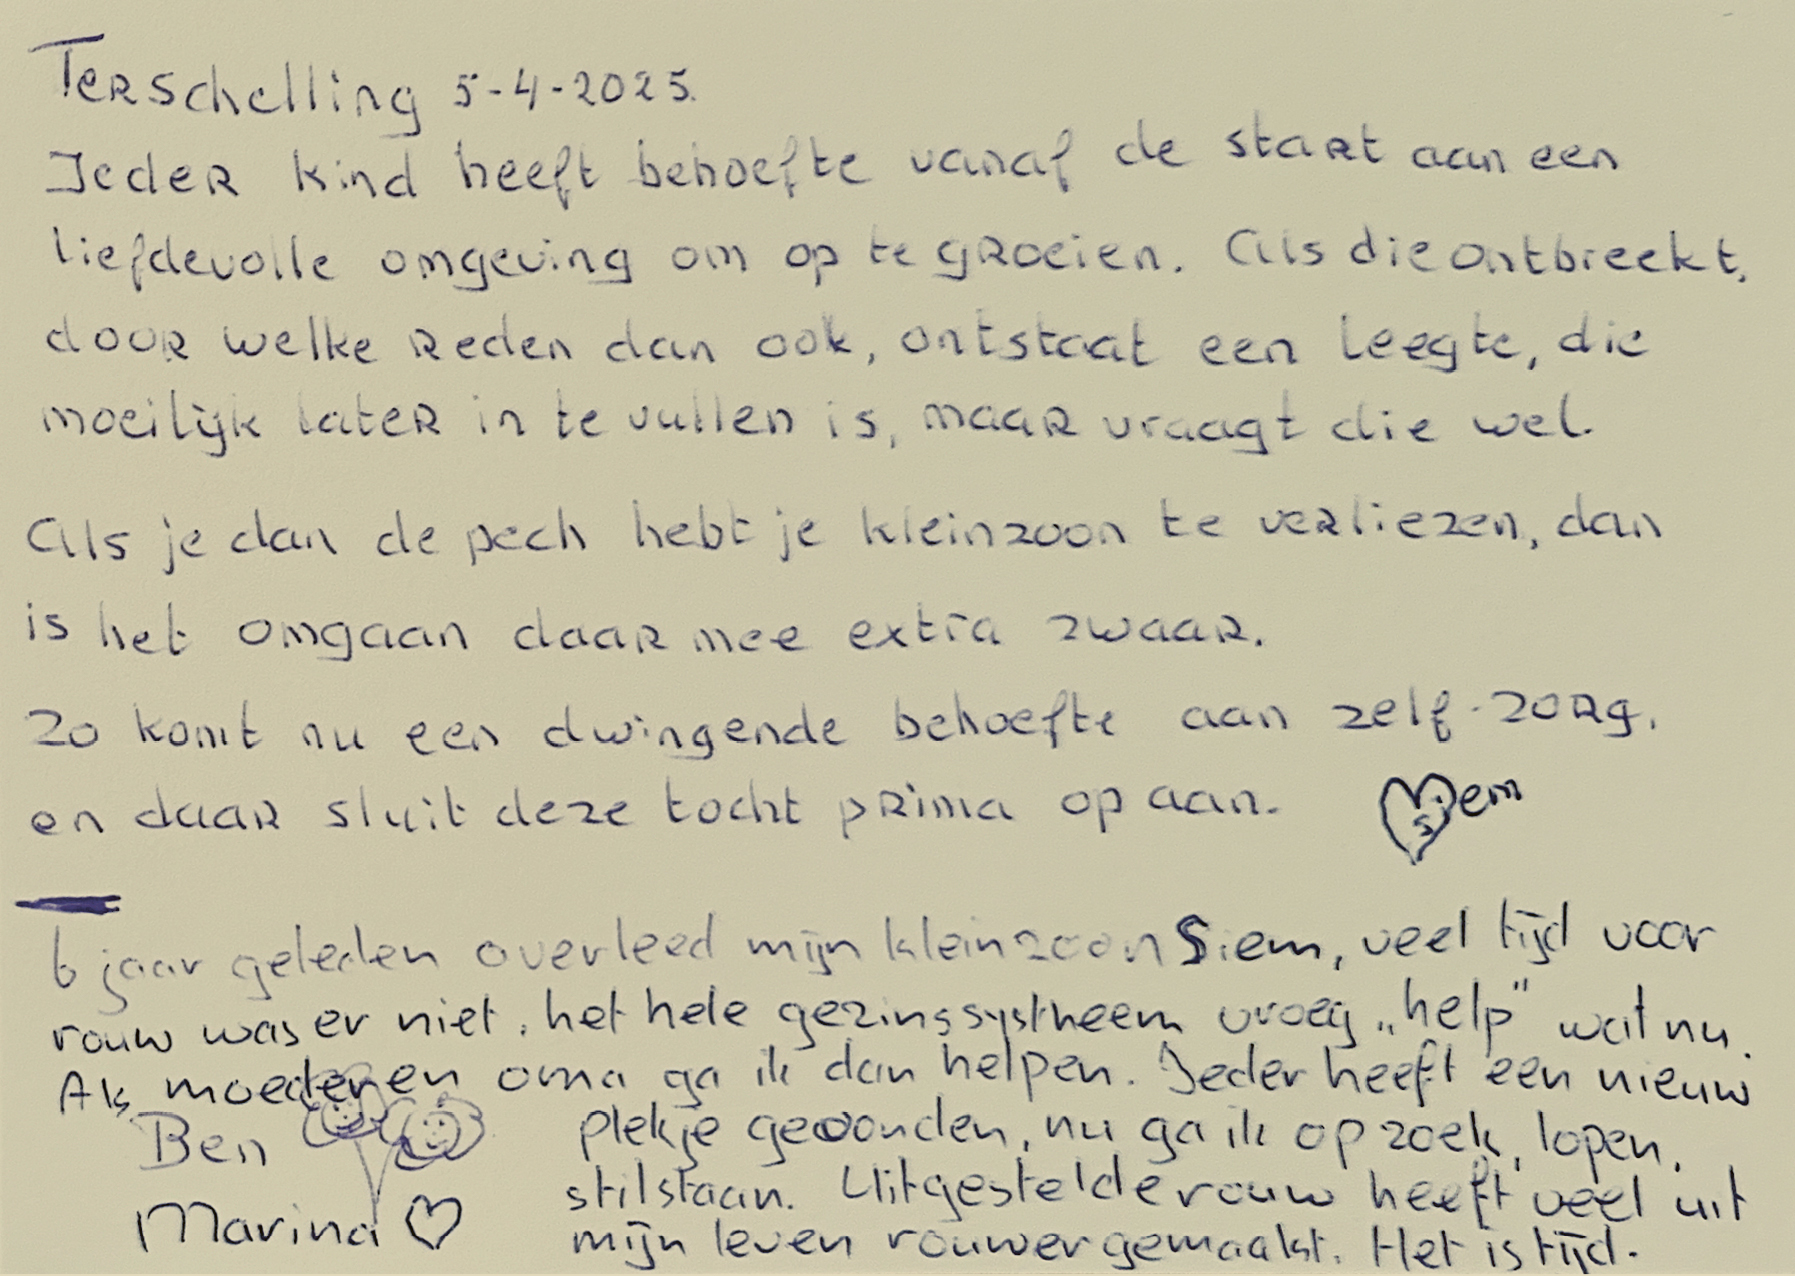 Terschelling 5-4-2025.
Ieder kind heeft behoefte vanaf de start aan een
liefdevolle omgeving om op te groeien. Als die ontbreekt,
door welke reden dan ook, ontstaat een leegte, die
moeilijk later in te vullen is, maar vraagt die wel.
Als je dan de pech hebt je kleinzoon te verliezen, dan
is het omgaan daar mee extra zwaar.
Zo komt nu een dwingende behoefte aan zelf-zorg.
en daar sluit deze tocht prima op aan. Siem
6 jaar geleden overleed mijn kleinzoon Siem, veel tijd voor
rouw was er niet. het hele gezinssystheem vroeg „help" wat nu.
Als moeder en oma ga ik dan helpen. Ieder heeft een nieuw
plekje gevonden, nu ga ik op zoek, lopen,
stilstaan. Uitgestelde rouw heeft veel uit
mijn leven rouwer gemaakt. Het is tijd.
Ben
Marina